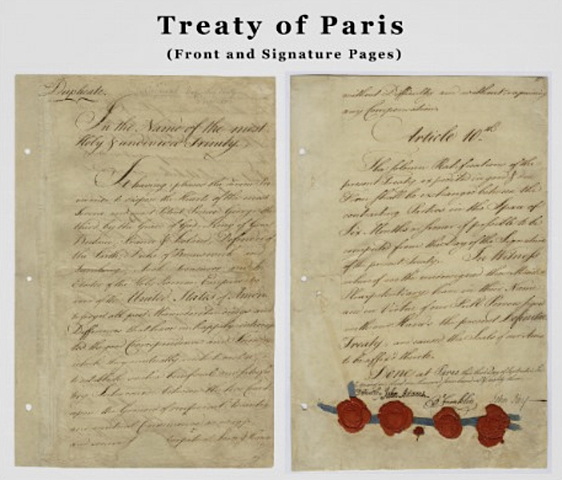 Treaty of Paris
(Front and Signature Pages)
Duplicate.
In the Name of the most
Holy & undivided Trinity.
It having pleased the divine Pro
vidence to dispose the Hearts of the most
Serene and most Potent Prince George the
third by the Grace of God, King of Great
Britain, France & Ireland, Defender of
the Faith, Duke of Brunswick and
Arch Treasurer and
Elector of the Holy Roman Empire
of the United States of America
to forget all past Misunderstandings and
Differences that have unhappily interrup
ted the good Correspondence and
which they mutually wish to
to establish such a beneficial
Intercourse between the two
upon the Ground of reciprocal
and mutual Convenience as may
and secure perpetual Peace &
without Difficulty and without requiring
any Compensation.
Article 10th.
The solemn Ratifications of the
present Treaty expedited in good & due
Form shall be exchanged between the
contracting Parties in the Space of
Six Months or sooner if possible to be
computed from the Day of the Signature
of the present Treaty. In Witness
whereof we the undersigned their Ministers
Plenipotentiary have in their Name
and in Virtue of our Full Powers signed
with our Hands the present Definitive
Treaty, and caused the Seals of our Arms
to be affix'd thereto.
Done at Paris this third day of September
John Adams. B Franklin John Jay